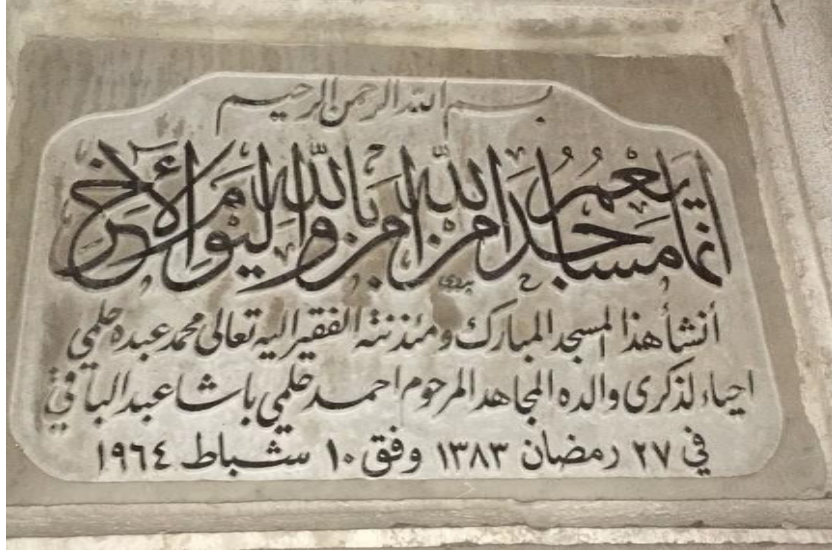 بسم الله الرحمن الرحيم
إنما يعمر مساجد الله من آمن بالله واليوم الآخر
بدوي
أنشأ هذا المسجد المبارك ومئذنته الفقير اليه تعالى محمد عبده حلمي
احياء لذكرى والده المجاهد المرحوم احمد حلمي باشا عبد الباقي
في ٢٧ رمضان ١٣٨٣ وفق ١٠ شباط ١٩٦٤